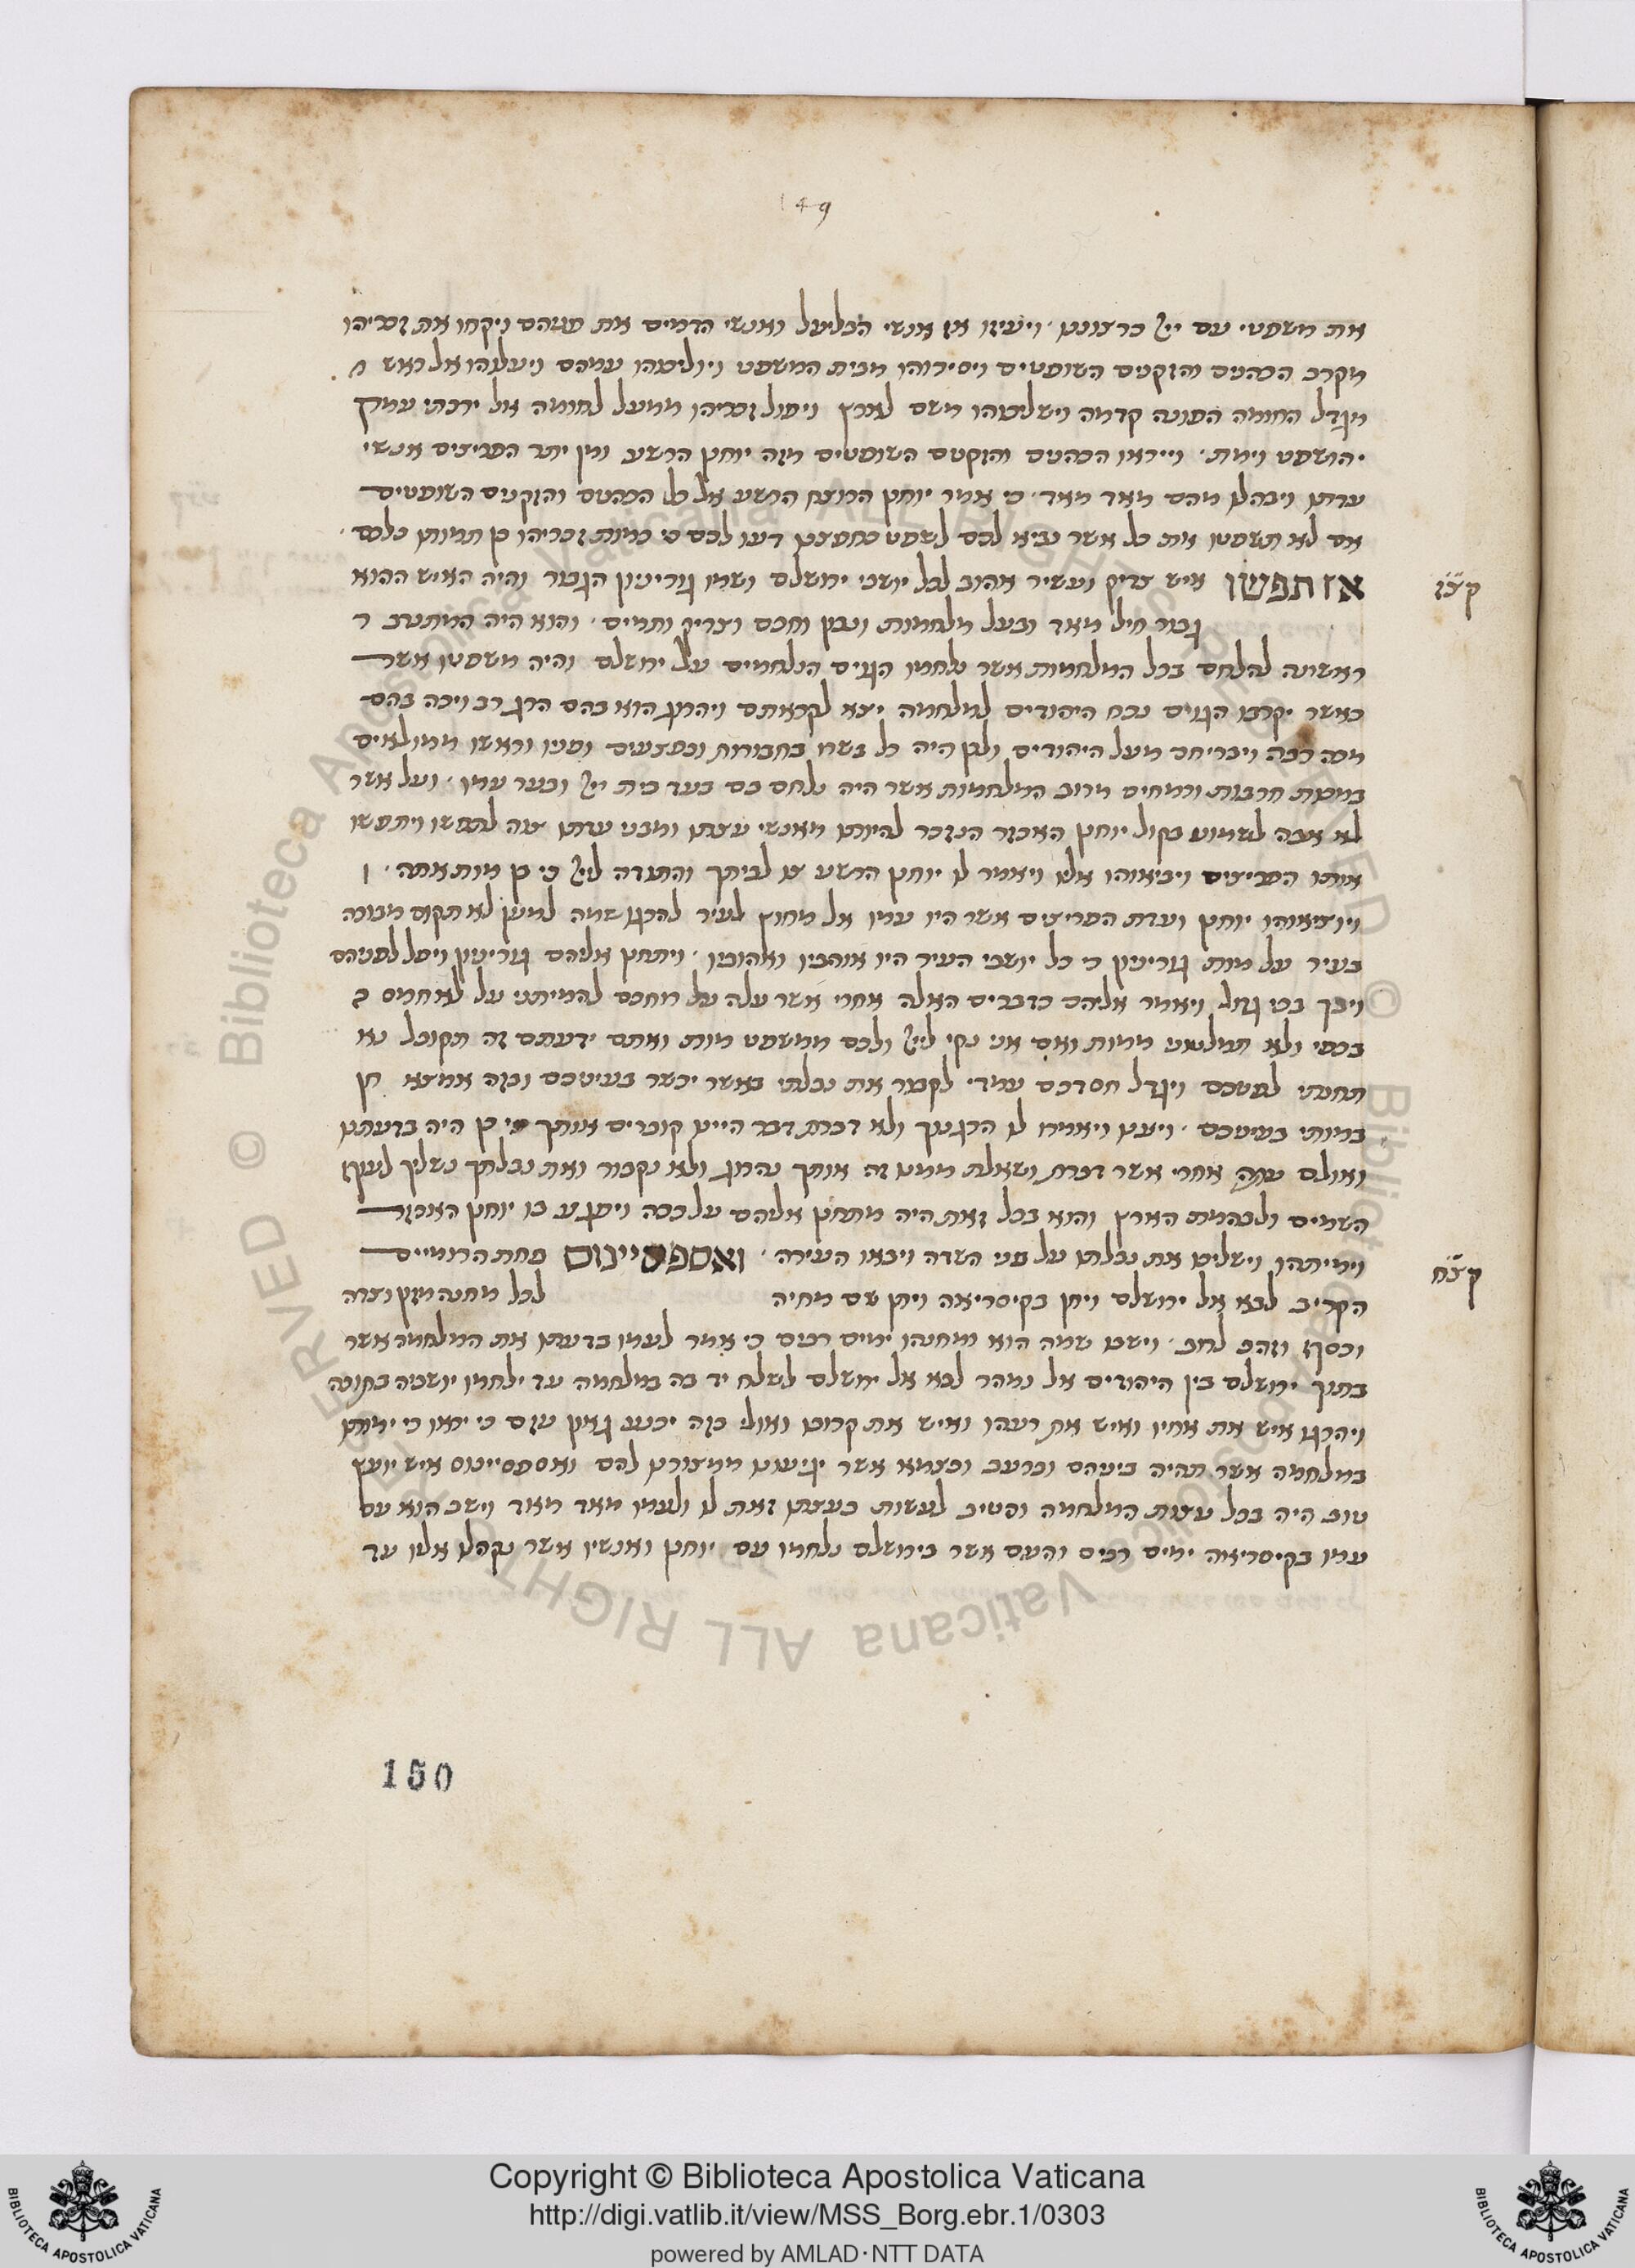 149
את משפטי עם ייי כרצונם ויעיזו אז אנשי הבליעל ואנשי הדמים את פניהם ויקחו את זכריהו
מקרב הכהנים והזקנים השופטים ויסירוהו מבית המשפט ויוליכוהו עמהם ויעלוהו אל ראש
מגדל החומה הפונה קדמה וישליכוהו משם לארץ ויפול זכריהו ממעל לחומה אל ירכתי עמק
יהושפט וימת וייראו הכהנים והזקנים השופטים מזה יוחנן הרשע ומן יתר הפריצים אנשי
עדתו ויבהלו מהם מאד מאד כי אמר יוחנן הרוצח הרשע אל כל הכהנים והזקנים השופטים
אם לא תשפטו את כל אשר נביא לכם לשפט כחפצנו דעו לכם כי כמות זכריהו כן תמותו כלכם
אז תפשו איש צדיק ועשיר אהוב לכל יושבי ירושלם ושמו גוריעון הגבור והיה האיש ההוא
קצז
גבור חיל מאד ובעל מלחמות ונבון וחכם וצדיק ותמים והוא היה המתנדב
ראשונה להלחם בכל המלחמות אשר נלחמו הגוים הנלחמים על ירושלם והיה משפטו אשר
כאשר יקרבו הגוים נכח היהודים למלחמה יצא לקראתם ויהרוג הוא בהם הרג רב ויכה בהם
מכה רבה ויבריחם מעל היהודים ולכן היה כל בשרו בחבורות ובפצעים ופניו וראשו ממולאים
במכות חרבות ורמחים מרוב המלחמות אשר היה נלחם בם בעד בית ייי ובעד עמו ועל אשר
לא אבה לשמוע בקול יוחנן האכזר הנזכר להיותו מאנשי עצתו ומבני עדתו צוה לתפשו ויתפשו
אותו הפריצים ויביאוהו אליו ויאמר לו יוחנן הרשע צו לביתך והתודה לייי כי בן מות אתה
ויוציאוהו יוחנן ועדת הפריצים אשר היו עמו אל מחוץ לעיר להרגו שמה למען לא תקום מבוכה
בעיר על מות גוריעון כי כל יושבי העיר היו אוהביו ואהוביו ויתחנן אליהם גוריעון ויפל לפניהם
ויבך בכי גדול ויאמר אליהם כדברים האלה אחרי אשר עלה על מחכם להמיתני על לא חמס
בכפי ולא תמלטוני ממות ואם אני נקי לייי ולכם ממשפט מות ואתם ידעתם זה תקובל נא
תחנתי לפניכם ויגדל חסדכם עמדי לקבור את נבלתי באשר יכשר בעיניכם ובזה אמצא חן
במותי בעיניכם ויענו ויאמרו לו הרגנוך ולא דברת דבר היינו קוברים אותך כי כן היה בדעתנו
ואולם עתה אחרי אשר דברת ושאלת ממנו זה אותך נהרוג ולא נקבור ואת נבלתך נשליך לעוף
השמים ולבהמת הארץ והוא בכל זאת היה מתחנן אליהם על ככה ויפגע בו יוחנן האכזר
וימיתהו וישליכו את נבלתו על פני השדה ויבאו העירה ואספסיינוס פחת הרומיים
קצח
הקריב לבא אל ירושלם ויחן בקיסריאה ויתן שם מחיה לכל מחנהו מזון וצדה
וכסף וזהב לרוב וישב שמה הוא ומחנהו ימים רבים כי אמר לעמו בדעתו את המלחמה אשר
בתוך ירושלם בין היהודים אל נמהר לבא אל ירושלם לשלח יד בה במלחמה עד ילחמו יושביה בתוכה
ויהרגו איש את אחיו ואיש את רעהו ואיש את קרובו ואולי בזה יכנע גאון עזם כי יראו כי ימותו
במלחמה אשר תהיה ביניהם וברעב ובצמא אשר יגיעום ממצורינו להם ואספסיינוס איש יועץ
טוב היה בכל עצות המלחמה והטיב לעשות בעצתו זאת לו ולעמו מאד מאד וישב הוא עם
עמו בקיסריאה ימים רבים והעם אשר בירושלם נלחמו עם יוחנן ואנשיו אשר נקהלו אליו עד
150
Copyright © Biblioteca Apostolica Vaticana
http://digi.vatlib.it/view/MSS_Borg.ebr.1/0303
powered by AMLAD·NTT DATA